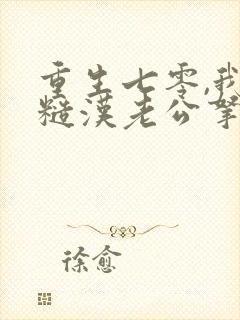 重生七零,我
糙漢老公拏
徐愈